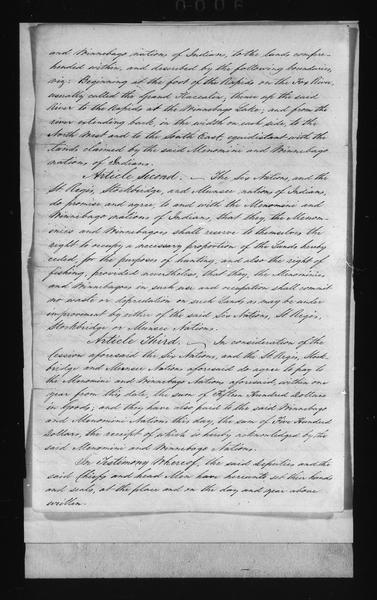 and Winnebago nations of Indians, to the lands compre-
hended within, and described by the following boundaries,
viz: Beginning at the foot of the Rapids on the Fox River,
usually called the Grand Kaccalin, thence up the said
River to the Rapids at the Winnebago Lake, and from the
river extending back, in the width on each side, to the
North West and to the South East, equidistant with the
Lands claimed by the said Menomini and Winnebago
nations of Indians.
Article Second. The Six Nations, and the
St Regis, Stockbridge, and Munsee nations of Indians,
do promise and agree, to and with the Menomini and
Winnebago nations of Indians, that they, the Menom-
inies and Winnebagoes shall reserve to themselves the
right to occupy a necessary proportion of the Lands hereby
ceded, for the purposes of hunting, and also the right of
fishing, provided nevertheless, that they, the Menominies
and Winnebagoes in such use and occupation shall commit
no waste or depredation on such Lands as may be under
improvement by either of the said Six Nations, St Regis,
Stockbridge or Munsee Nations.
Article Third. In consideration of the
Cession aforesaid the Six Nations, and the St Regis, Stock-
bridge and Munsee Nations aforesaid do agree to pay to
the Menomini and Winnebago Nations aforesaid, within one
year from this date, the sum of Fifteen Hundred Dollars
in Goods; and they have also paid to the said Winnebago
and Menomini Nations this day, the sum of Five Hundred
Dollars, the receipt of which is hereby acknowledged by the
said Menomini and Winnebago Nations.
In Testimony Whereof, the said deputies and the
said Chiefs and head Men have hereunto set their hands
and seals, at the place and on the day and year above
written.